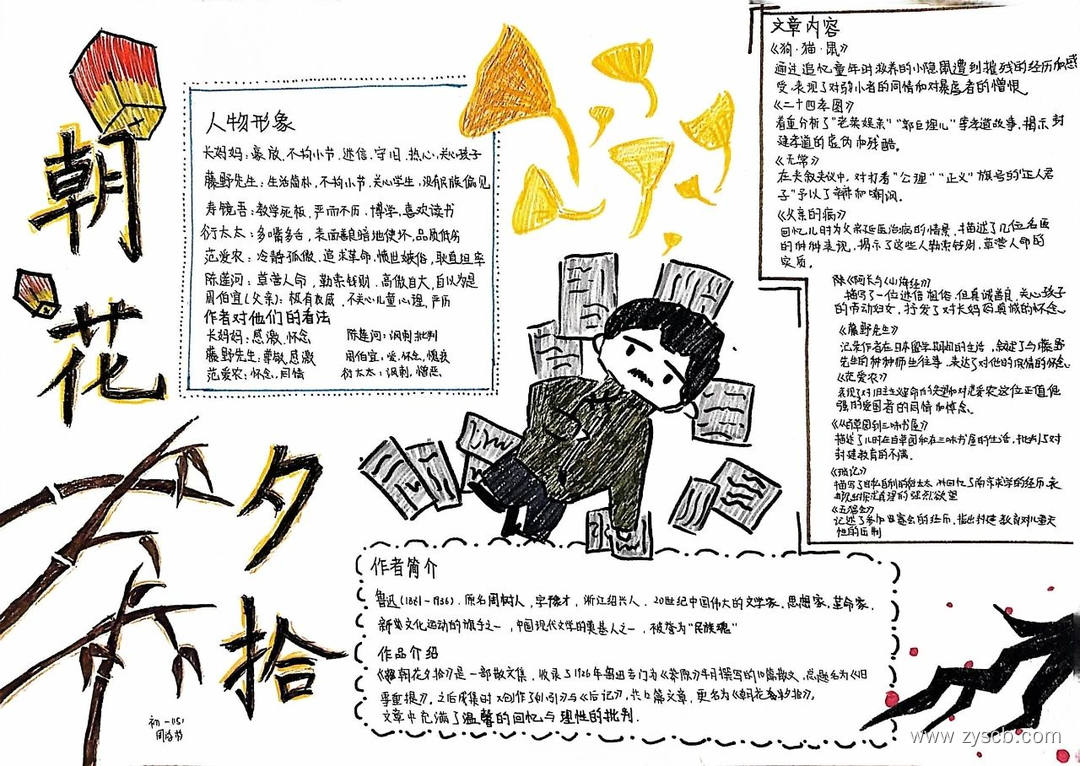 朝
花
夕
拾
人物形象
长妈妈：豪放、不拘小节、迷信、守旧、热心、关心孩子
藤野先生：生活简朴，不拘小节、关心学生，没有民族偏见
寿镜吾：教学死板，严而不厉、博学、喜欢读书
衍太太：多嘴多舌，表面善良暗地使坏、品质低劣
范爱农：冷静孤傲、追求革命，愤世嫉俗，耿直坦率
陈莲河：草菅人命，勒索钱财，高傲自大，自以为是
周伯宜(父亲)：极有教展 不关心儿童心理，严厉
作者对他们的看法
长妈妈：感激、怀念 陈莲河：讽刺批判
藤野先生：尊敬、感激 周伯宜：爱、怀念、愧疚
范爱农：怀念、同情 衍太太：讽刺，憎恶、
文章内容
《狗·猫·鼠》
通过追忆童年时救养的小隐鼠遭到摧残的经历和感
受、表现了对弱小者的同情和对暴虐者的憎恨。
《二十四孝图》
着重分析了“老莱娱亲”“郭巨埋儿”等孝道故事，揭示封
建孝道的虚伪和残酷。
《无常》
在夹叙夹议中，对打着“公理”“正义”旗号的“正人君
子”予以了辛辣和嘲讽。
《父亲的病》
回忆儿时为父亲延医治病的情景，描述了几位名医
的种种表现，揭示了这些人勒索钱财，草菅人命的
实质。
《阿长与《山海经》》
描写了一位迷信粗俗，但真诚善良，关心孩子
的劳动妇女，抒发了对长妈妈真诚的怀念。
《藤野先生》
记录作者在日本留学期间的生活，叙述了与藤野
先生的种种师生往事，表达了对他的深情的怀念。
《范爱农》
表现了对旧主义革命的失望和对范爱农这位正直倔
强的爱国者的同情和悼念。
《从百草园到三味书屋》
描述了儿时在百草园和在三味书屋的生活，批判了对
封建教育的不满。
《琐记》
描写了自私自利的衍太太，并回忆了南京求学的经历、表
现出探求真理的强烈欲望
《五猖会》
记述了参加迎赛会的经历，指出封建教育对儿童天
性的压制
作者简介
鲁迅(1881-1936)，原名周树人，字豫才，浙江绍兴人，20世纪中国伟大的文学家、思想家、革命家、
新文化运动的旗手之一，中国现代文学的奠基人之一，被誉为“民族魂”
作品介绍
《朝花夕拾》是一部散文集，收录了1926年鲁迅专门为《莽原》半月撰写的10篇散文，总题名为《旧
事重提》，之后成集时又创作了《小引》与《后记》，共12篇文章，更名为《朝花夕拾》，
文章中充满了温馨的回忆与理性的批判。
初一(15)
www.zyscb.com